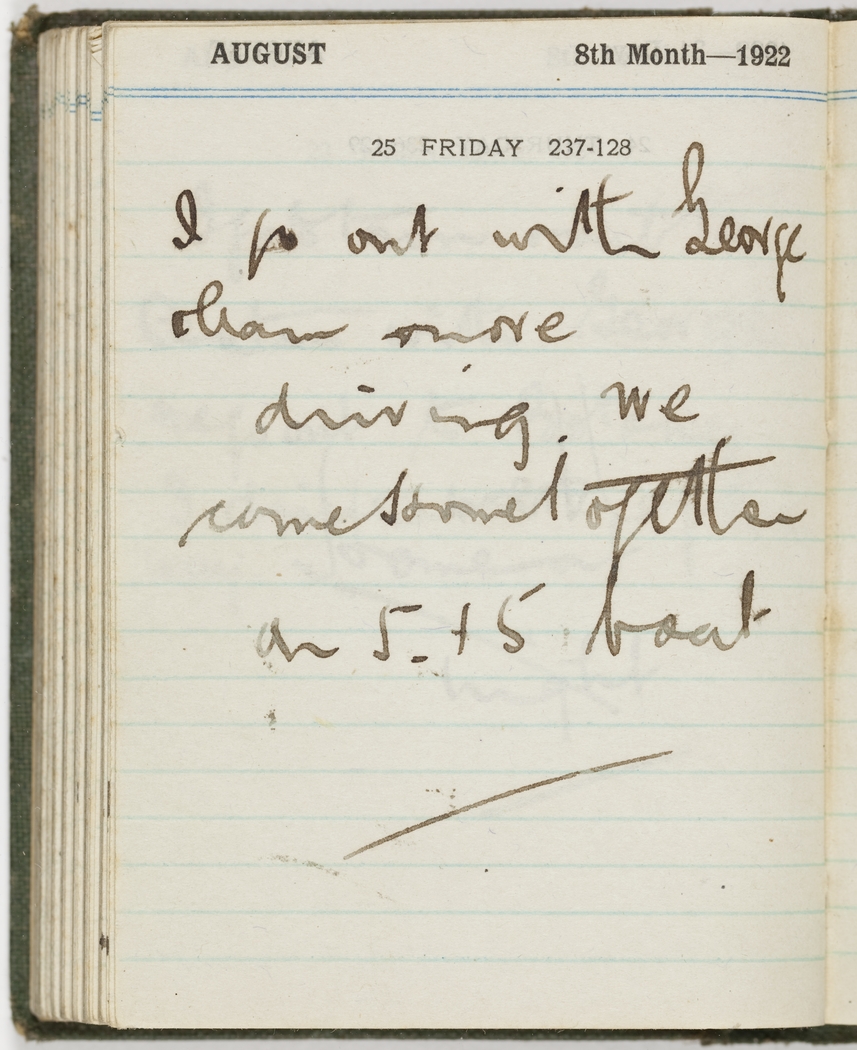 AUGUST 8th Month—1922
25 FRIDAY 237-128
I go out with George
learn more
driving. We
come home together
on 5.15 boat